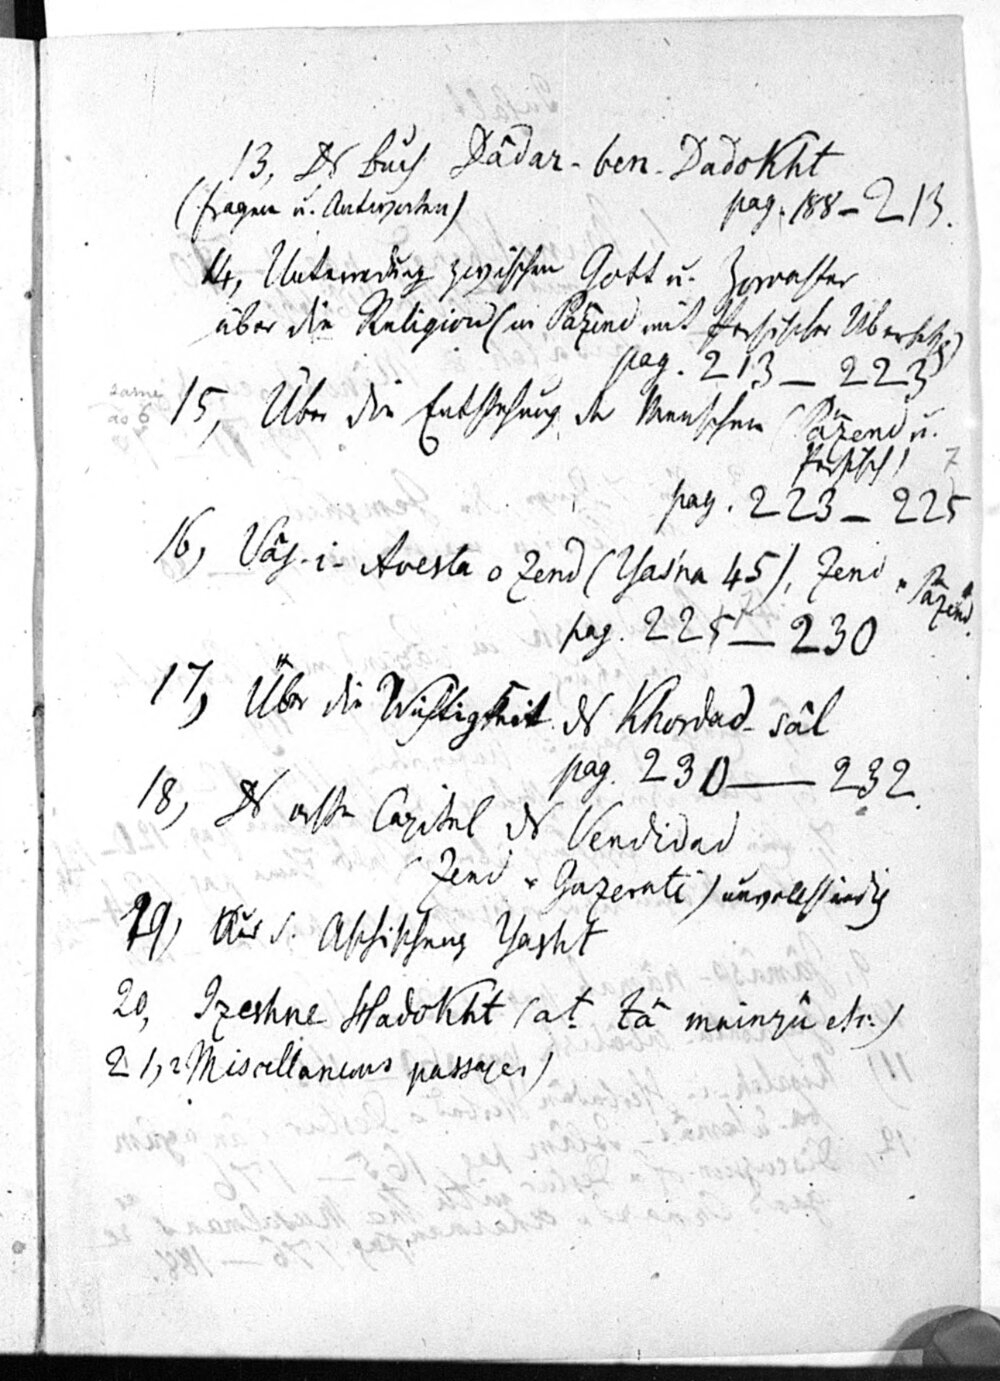 13, Ds Buch Dâdar-ben-Dadokht
(Fragen u. Antworten) pag. 188 - 213.
14, Unterredung zwischen Gott u. Zoroaster
über die Religion (in Pâzend mit Persischer Übersetzg)
pag. 213 — 223
same as 6
15, Über die Entstehung der Menschen (Pâzend u.
Persisch)
pag. 223 — 225
16, Vâj-i-Avesta o Zend (Yasna 45), Zend u Pâzend.
pag. 225 — 230
17, Über die Wichtigkeit ds Khordad-sâl
pag. 230 — 232.
18, Ds erste Capitel ds Vendidad
(Zend u Guzerati) unvollständig
19, Aus d. Ashisheng Yasht
20, Izeshne Hadokht (at tâ mainyû etc.)
21, Miscellaneous passages)